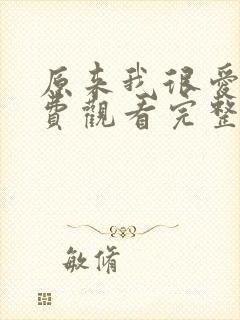 原来我很爱
费觀看完整
敏脩